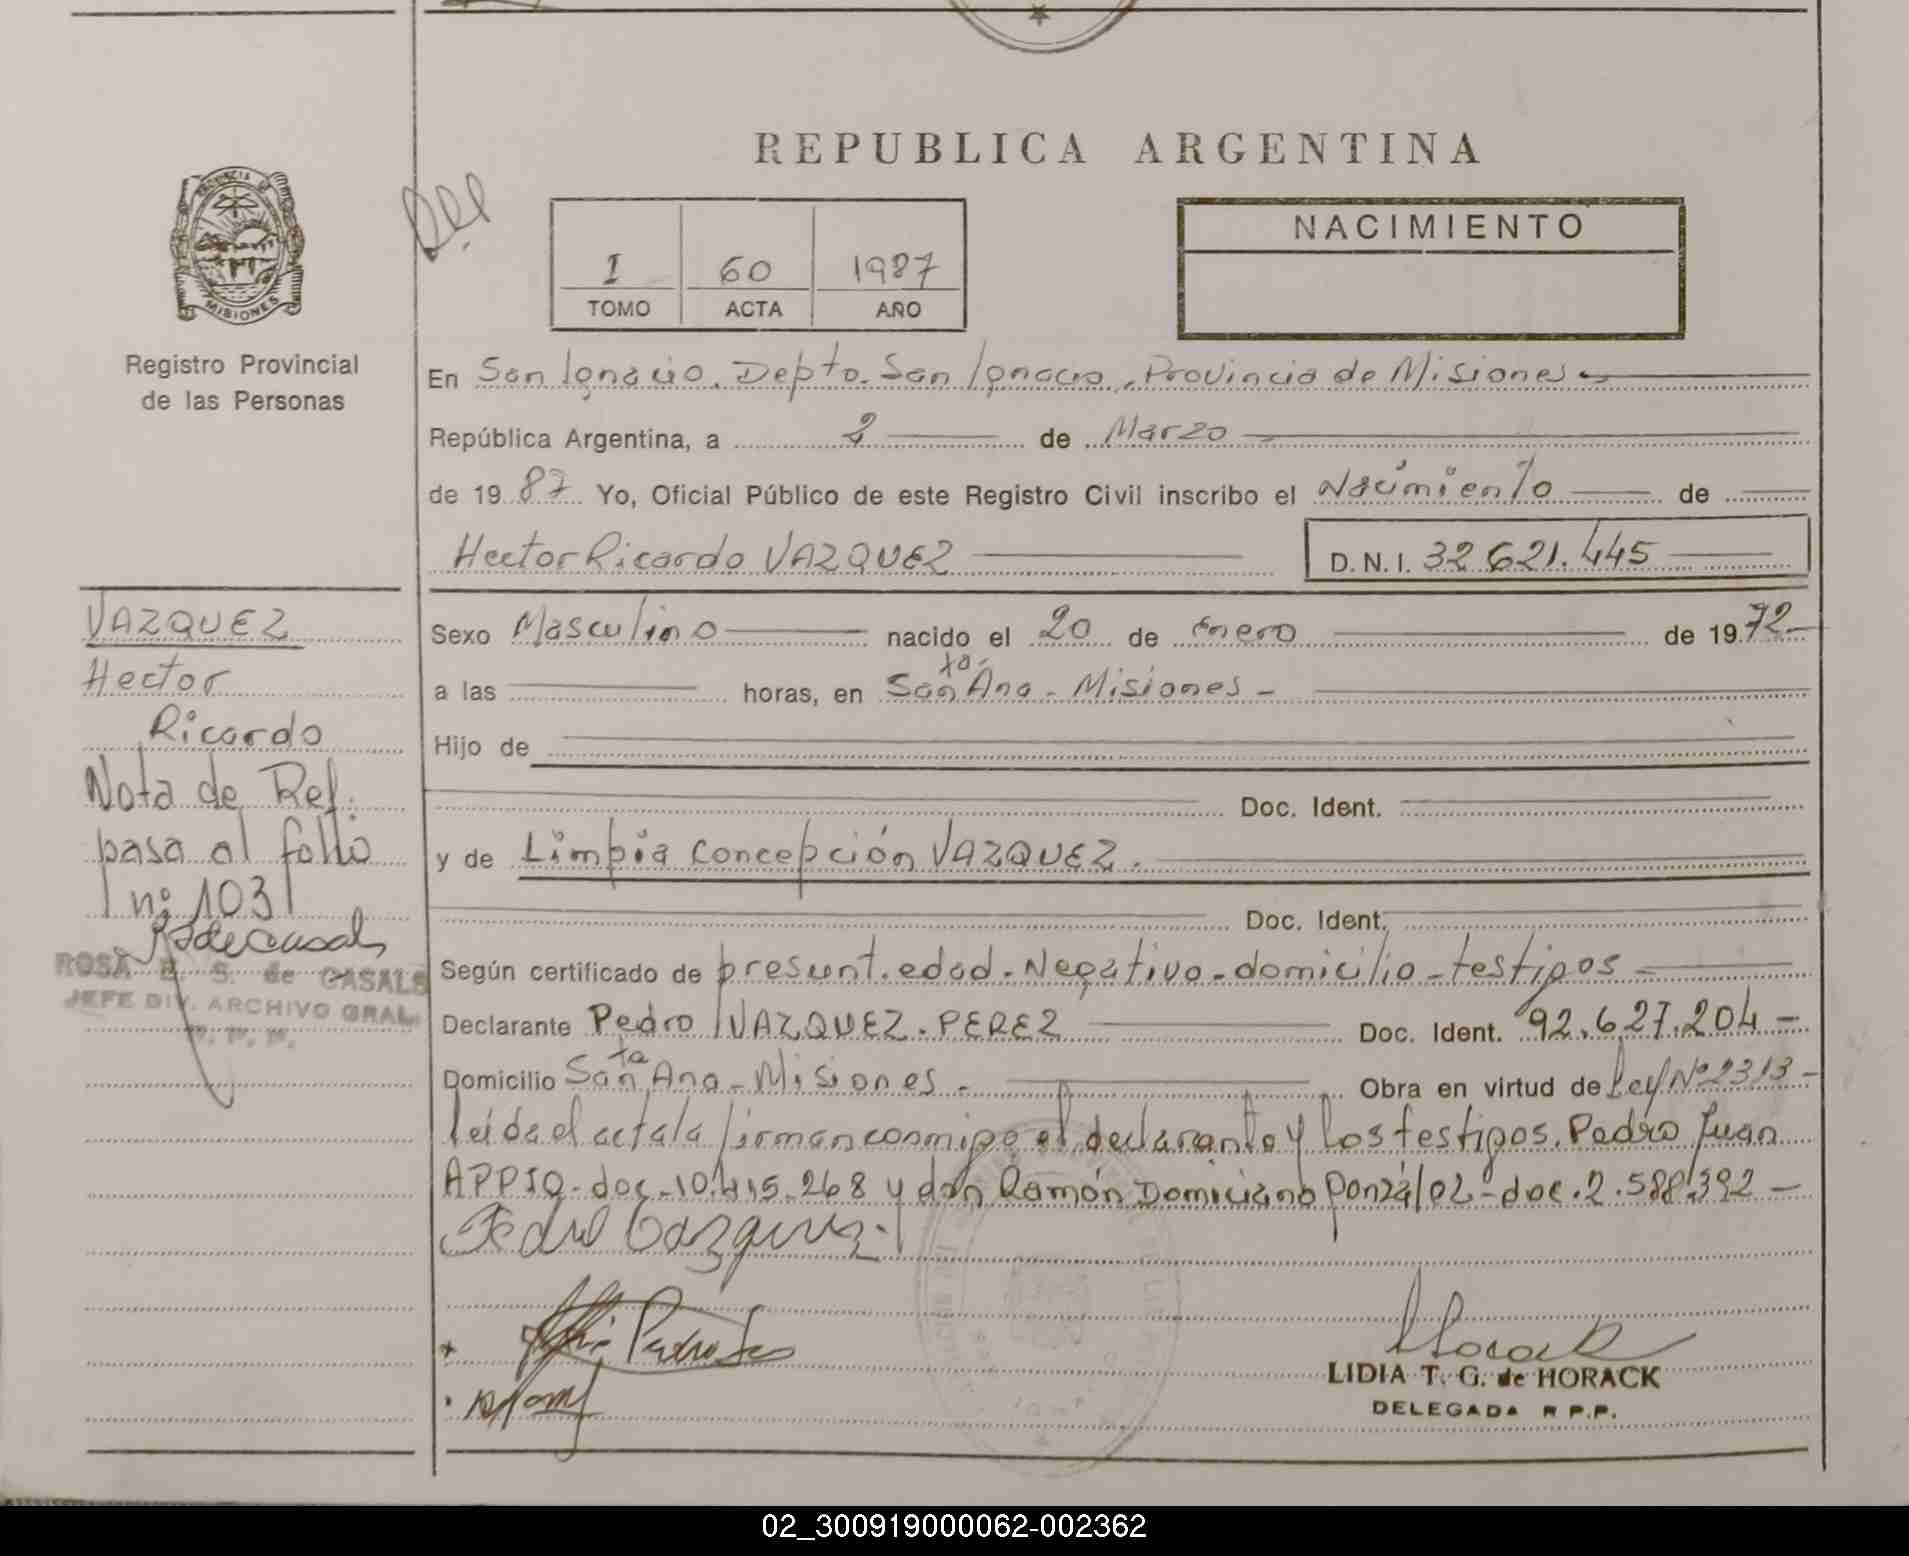 REPUBLICA ARGENTINA
PROVINCIA DE
MISIONES
Registro Provincial
de las Personas
I 60 1987
TOMO ACTA AÑO
NACIMIENTO
En San Ignacio. Depto. San Ignacio, Provincia de Misiones
República Argentina, a 2 de Marzo
de 19 87 Yo, Oficial Público de este Registro Civil inscribo el Nacimiento de
Hector Ricardo VAZQUEZ D.N.I. 32.621.445
VAZQUEZ
Hector
Ricardo
Nota de Ref.
pasa al folio
nº 103
ROSA E. S. de CASALS
JEFE DIV. ARCHIVO GRAL.
Sexo Masculino nacido el 20 de Enero de 1972
a las horas, en San ta Ana - Misiones -
Hijo de
Doc. Ident.
y de Limpia Concepción VAZQUEZ.
Doc. Ident.
Según certificado de presunt. edad - Negativo - domicilio - testigos -
Declarante Pedro VAZQUEZ - PEREZ Doc. Ident. 92.627.204 -
Domicilio San ta Ana - Misiones - Obra en virtud de Ley Nº 2313 -
leída el acta la firman conmigo el declarante y los testigos. Pedro Juan
doc - 10.415.268 y don Ramón Domiciano González - doc. 2.588.392 -
Pedro Vazquez
Horack
LIDIA T. G. de HORACK
DELEGADA R P.P.
02_300919000062-002362